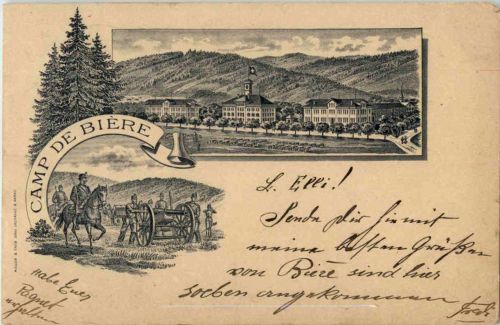 CAMP DE BIÈRE
L. Elli!
Sende Dir hiermit
meine besten Grüße
von Bière sind hier
soeben angekommen
Fredi
habe Euer
Paquet
erhalten